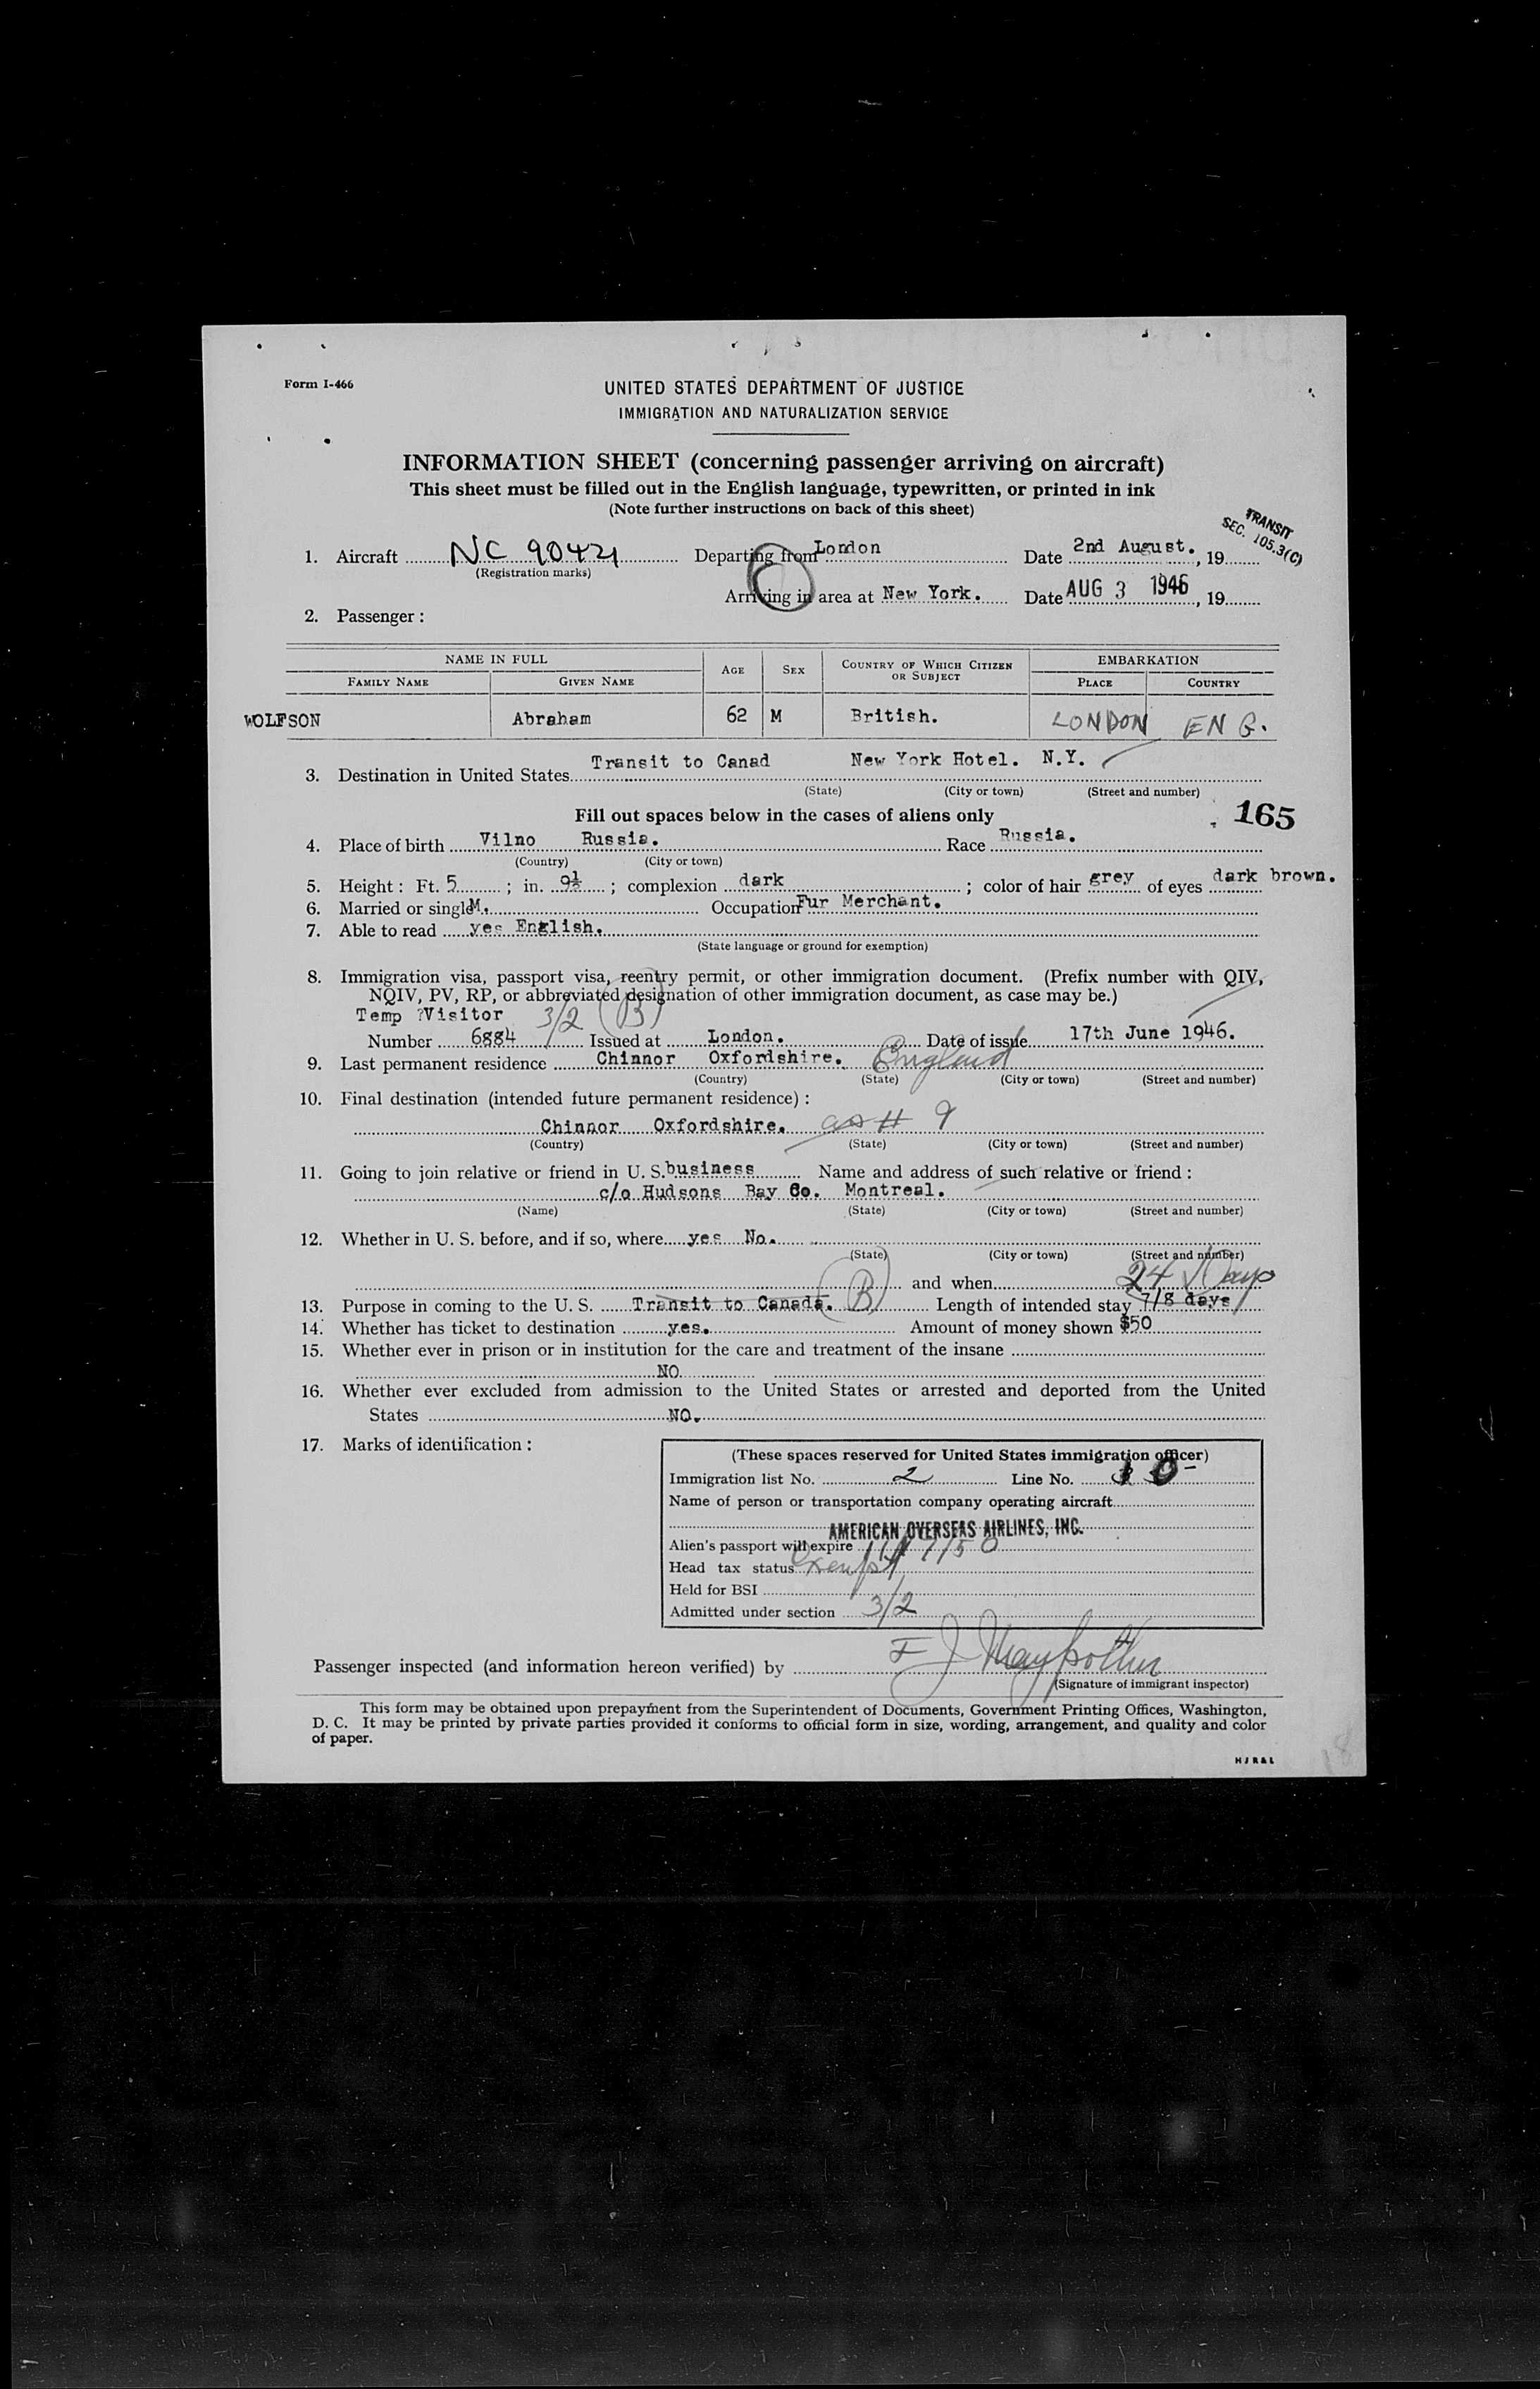 Form I-466
UNITED STATES DEPARTMENT OF JUSTICE
IMMIGRATION AND NATURALIZATION SERVICE
INFORMATION SHEET (concerning passenger arriving on aircraft)
This sheet must be filled out in the English language, typewritten, or printed in ink
(Note further instructions on back of this sheet)
TRANSIT
SEC. 105.3(C)
1. Aircraft NC 90421 Departing from London Date 2nd August. , 19
(Registration marks)
Arriving in area at New York. Date AUG 3 1946 , 19
2. Passenger :
NAME IN FULL AGE SEX COUNTRY OF WHICH CITIZEN OR SUBJECT EMBARKATION
FAMILY NAME GIVEN NAME PLACE COUNTRY
WOLFSON Abraham 62 M British. LONDON ENG.
3. Destination in United States Transit to Canad New York Hotel. N.Y.
(State) (City or town) (Street and number)
Fill out spaces below in the cases of aliens only
165
4. Place of birth Vilno Russia. Race Russia.
(Country) (City or town)
5. Height : Ft. 5 ; in. 9½ ; complexion dark ; color of hair grey of eyes dark brown.
6. Married or single M. Occupation Fur Merchant.
7. Able to read yes English.
(State language or ground for exemption)
8. Immigration visa, passport visa, reentry permit, or other immigration document. (Prefix number with QIV,
NQIV, PV, RP, or abbreviated designation of other immigration document, as case may be.)
Temp ?Visitor 3/2 (B)
Number 6884 Issued at London. Date of issue 17th June 1946.
9. Last permanent residence Chinnor Oxfordshire. England
(Country) (State) (City or town) (Street and number)
10. Final destination (intended future permanent residence) :
Chinnor Oxfordshire. as # 9
(Country) (State) (City or town) (Street and number)
11. Going to join relative or friend in U. S. business Name and address of such relative or friend :
c/o Hudsons Bay Co. Montreal.
(Name) (State) (City or town) (Street and number)
12. Whether in U. S. before, and if so, where yes No.
(State) (City or town) (Street and number)
(B) and when 24 Days
13. Purpose in coming to the U. S. Transit to Canada. Length of intended stay 7/8 days
14. Whether has ticket to destination yes. Amount of money shown $50
15. Whether ever in prison or in institution for the care and treatment of the insane
NO
16. Whether ever excluded from admission to the United States or arrested and deported from the United
States NO.
17. Marks of identification :
(These spaces reserved for United States immigration officer)
Immigration list No. 2 Line No.
Name of person or transportation company operating aircraft
AMERICAN OVERSEAS AIRLINES, INC.
Alien's passport will expire
Head tax status exempt
Held for BSI
Admitted under section 3/2
Passenger inspected (and information hereon verified) by
(Signature of immigrant inspector)
This form may be obtained upon prepayment from the Superintendent of Documents, Government Printing Offices, Washington,
D. C. It may be printed by private parties provided it conforms to official form in size, wording, arrangement, and quality and color
of paper.
HJR&L